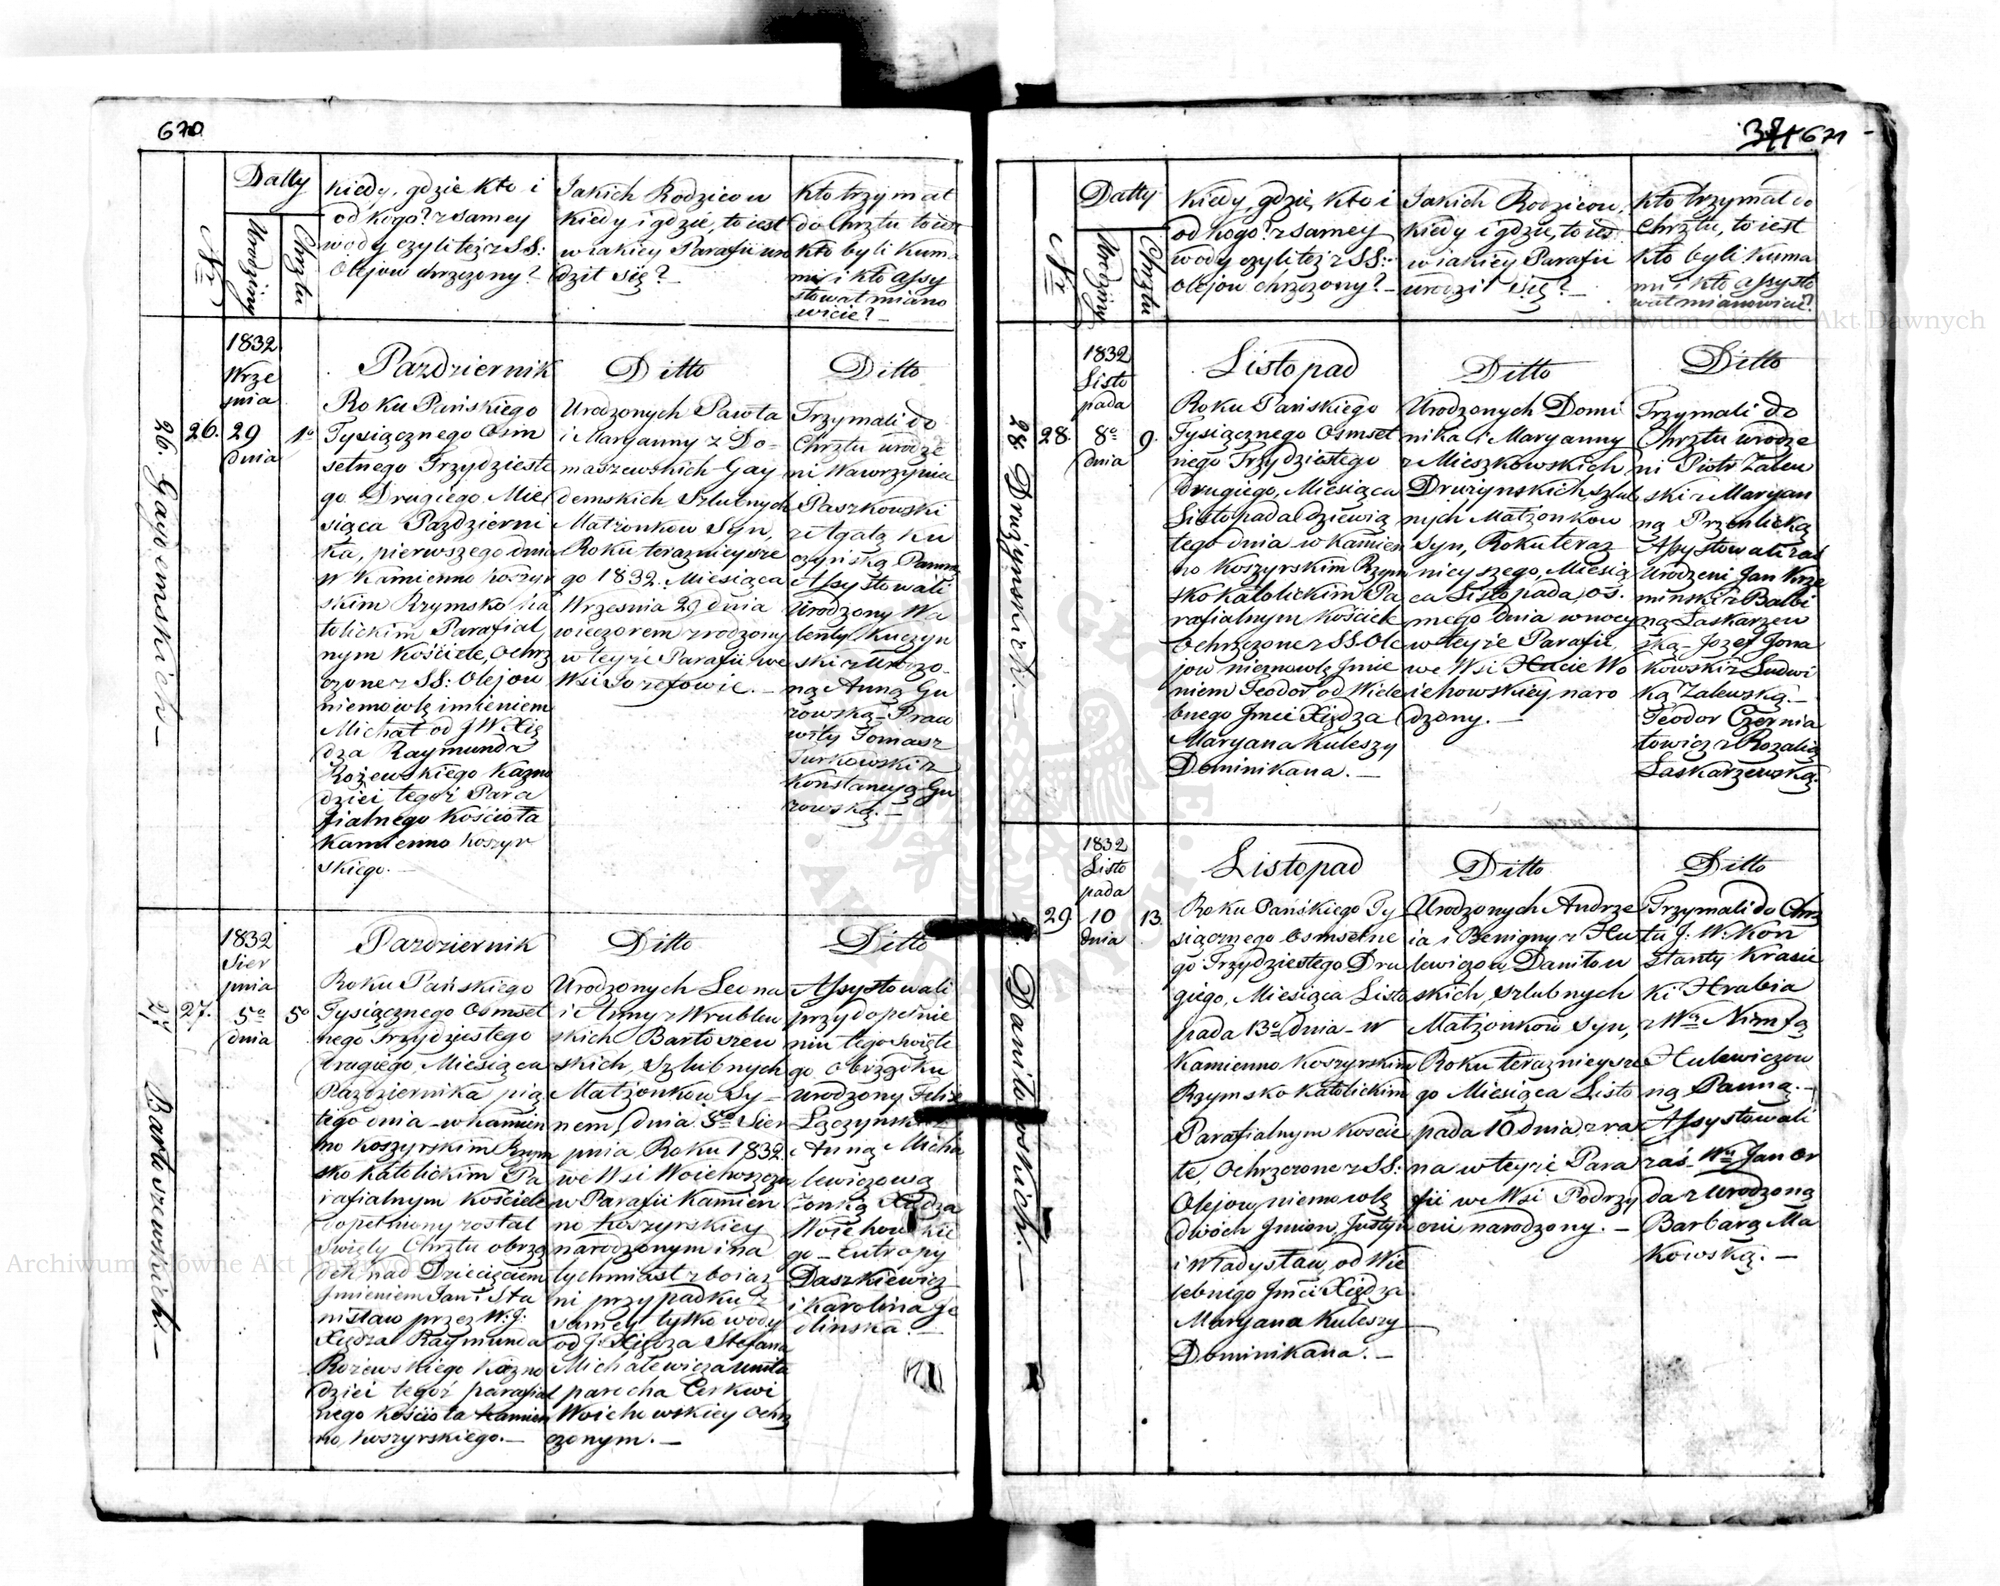 670
Datty
Nr
Urodziny
Chrztu
Kiedy, gdzie kto i
od kogo? z samey
wody czyli też z SS:
Olejow chrzczony? –
Jakich Rodzicow
kiedy i gdzie, to iest
w iakiey Parafii uro
dził się? –
Kto trzymał
do Chrztu to iest
kto byli Kum
mi i kto assy
stował miano
wicie? –
26. Gawemskich –
26.
1832
Wrze
śnia
29
dnia
1º
Pazdziernik
Roku Pańskiego
Tysiącznego Osm
setnego Trzydzieste
go Drugiego Mie
siąca Pazdzierni
ka, pierwszego dnia
w Kamienno Koszyr
skim Rzymsko Ka
tolickim Parafial
nym Kościele, Ochrz
czone z SS: Olejow
niemowlę imieniem
Michał od JW. Xię
dza Raymunda
Rożewskiego Kazno
dziei tegoż Para
fialnego Kościoła
Kamienno Koszyr
skiego. –
Ditto
Urodzonych Pawła
i Maryanny z Do-
maszewskich Gay
demskich Szlubnych
Małżonkow Syn,
Roku teraznieysze
go 1832. Miesiąca
Września 29 dnia
wieczorem zrodzony
w teyże Parafii we
Wsi Jozefowie. –
Ditto
Trzymali do
Chrztu urodze
ni Wawrzyniec
Paszkowski
z Agatą Ku
czyńską Panną
Assystowali
Urodzony Wa
lenty Kuczyn
ski z Urodzo-
ną Anną Gu
rowską – Praw
wity Tomasz
Turkowski z
Konstancyą Gu
rowską. –
27. Bartoszewskich. –
27.
1832
Sier
pnia
5º
dnia
5º
Pazdziernik
Roku Pańskiego
Tysiącznego Osmset
nego Trzydziestego
Drugiego, Miesiąca
Pazdziernika pią
tego dnia – w Kamien
no Koszyrskim Rzym
sko Katolickim Pa
rafialnym Kościele
dopełniony został
Święty Chrztu obrzą
dek nad Dziecięciem
Jmieniem Jan: Sta
nisław przez W: J:
Xiędza Raymunda
Rożewskiego Kazno
dziei tegoż parafial
nego Kościoła Kamien
no Koszyrskiego. –
Ditto
Urodzonych Leona
i Anny z Wrublew
skich Bartoszew
skich, Szlubnych
Małżonkow Sy-
nem, dnia 5º Sier
pnia Roku 1832
we Wsi Woiehoszczy
w Parafii Kamien
no Koszyrskiey
narodzonym i na
tychmiast z boiaz
ni przypadku z
samey tylko wody
od J: Xiędza Stefana
Michalewicza Unita
parocha Cerkwi
Woiehowskiey Ochrz
czonym. –
Ditto
Assystowali
przy dopełnie
niu tego Święte
go Obrządku
Urodzony Felix
Łączynski z
Anną Micha
lewiczową
Żoną Xiędza
Woiehowskie
go – Eutropy
Daszkiewicz
i Karolina Je
dlinska. –
671
Datty
Nr
Urodziny
Chrztu
Kiedy, gdzie, kto i
od kogo? z samey
wody czyli też z SS:
Olejow chrzczony? –
Jakich Rodzicow,
kiedy i gdzie, to iest
w iakiey Parafii
urodził się? –
Kto trzymał do
Chrztu, to iest
kto byli Kuma
mi i kto assysto
wał mianowicie?
28. Drużynskich. –
28.
1832
Listo
pada
8º
dnia
9.
Listopad
Roku Pańskiego
Tysiącznego Osmset
nego Trzydziestego
Drugiego, Miesiąca
Listopada dziewią
tego dnia w Kamien
no Koszyrskim Rzym
sko Katolickim Pa
rafialnym Kościele
Ochrzczone z SS. Ole
jow niemowlę Jmie
niem Teodor od Wiele
bnego Jmci Xiędza
Maryana Kuleszy
Dominikana. –
Ditto
Urodzonych Domi
nika i Maryanny
z Mieszkowskich
Drużynskich, szlub
nych Małżonkow
Syn, Roku teraz
nieyszego, Miesią
ca Listopada, os:
mego dnia w nocy
w teyże Parafii,
we Wsi Hucie Wo
iehowskiey naro
dzony. –
Ditto
Trzymali do
Chrztu urodze
ni Piotr Zalew
ski z Maryan
ną Przenlicką
Assystowali zaś
Urodzeni Jan Krze
minski z Balbi
ną Laskarzew
ską – Jozef Jona
kowski z Ludwi
ką Zalewską. –
Teodor Czernia
towicz z Rozalią
Laskarzewską.
Daniłowskich. –
29
1832
Listo
pada
10
dnia
13.
Listopad
Roku Pańskiego Ty
siącznego Osmsetne
go Trzydziestego Dru
giego, Miesiąca Listo
pada 13º dnia – w
Kamienno Koszyrskim
Rzymsko Katolickim
Parafialnym Koscie
le, Ochrzczone z SS:
Olejow niemowlę
dwóch Jmion Justyn
i Władysław, od Wie
lebnego Jmci Xiędza
Maryana Kuleszy –
Dominikana. –
Ditto
Urodzonych Andrze
ia i Benigny z Hu
lewiczow Daniłow
skich, Szlubnych
Małżonkow Syn,
Roku teraznieysze
go Miesiąca Listo
pada 10 dnia, z ra
na w teyże Para
fii we Wsi Podrzy
cni, narodzony. –
Ditto
Trzymali do Chrz
tu J: W: Kon
stanty Krasic
ki Hrabia
z Wą Nimfą
Hulewiczow
ną Panną. –
Assystowali
zaś Wny Jan Or
da z Urodzoną
Barbarą Ma
kowską. –
Archiwum Główne Akt Dawnych
Archiwum Główne Akt Dawnych